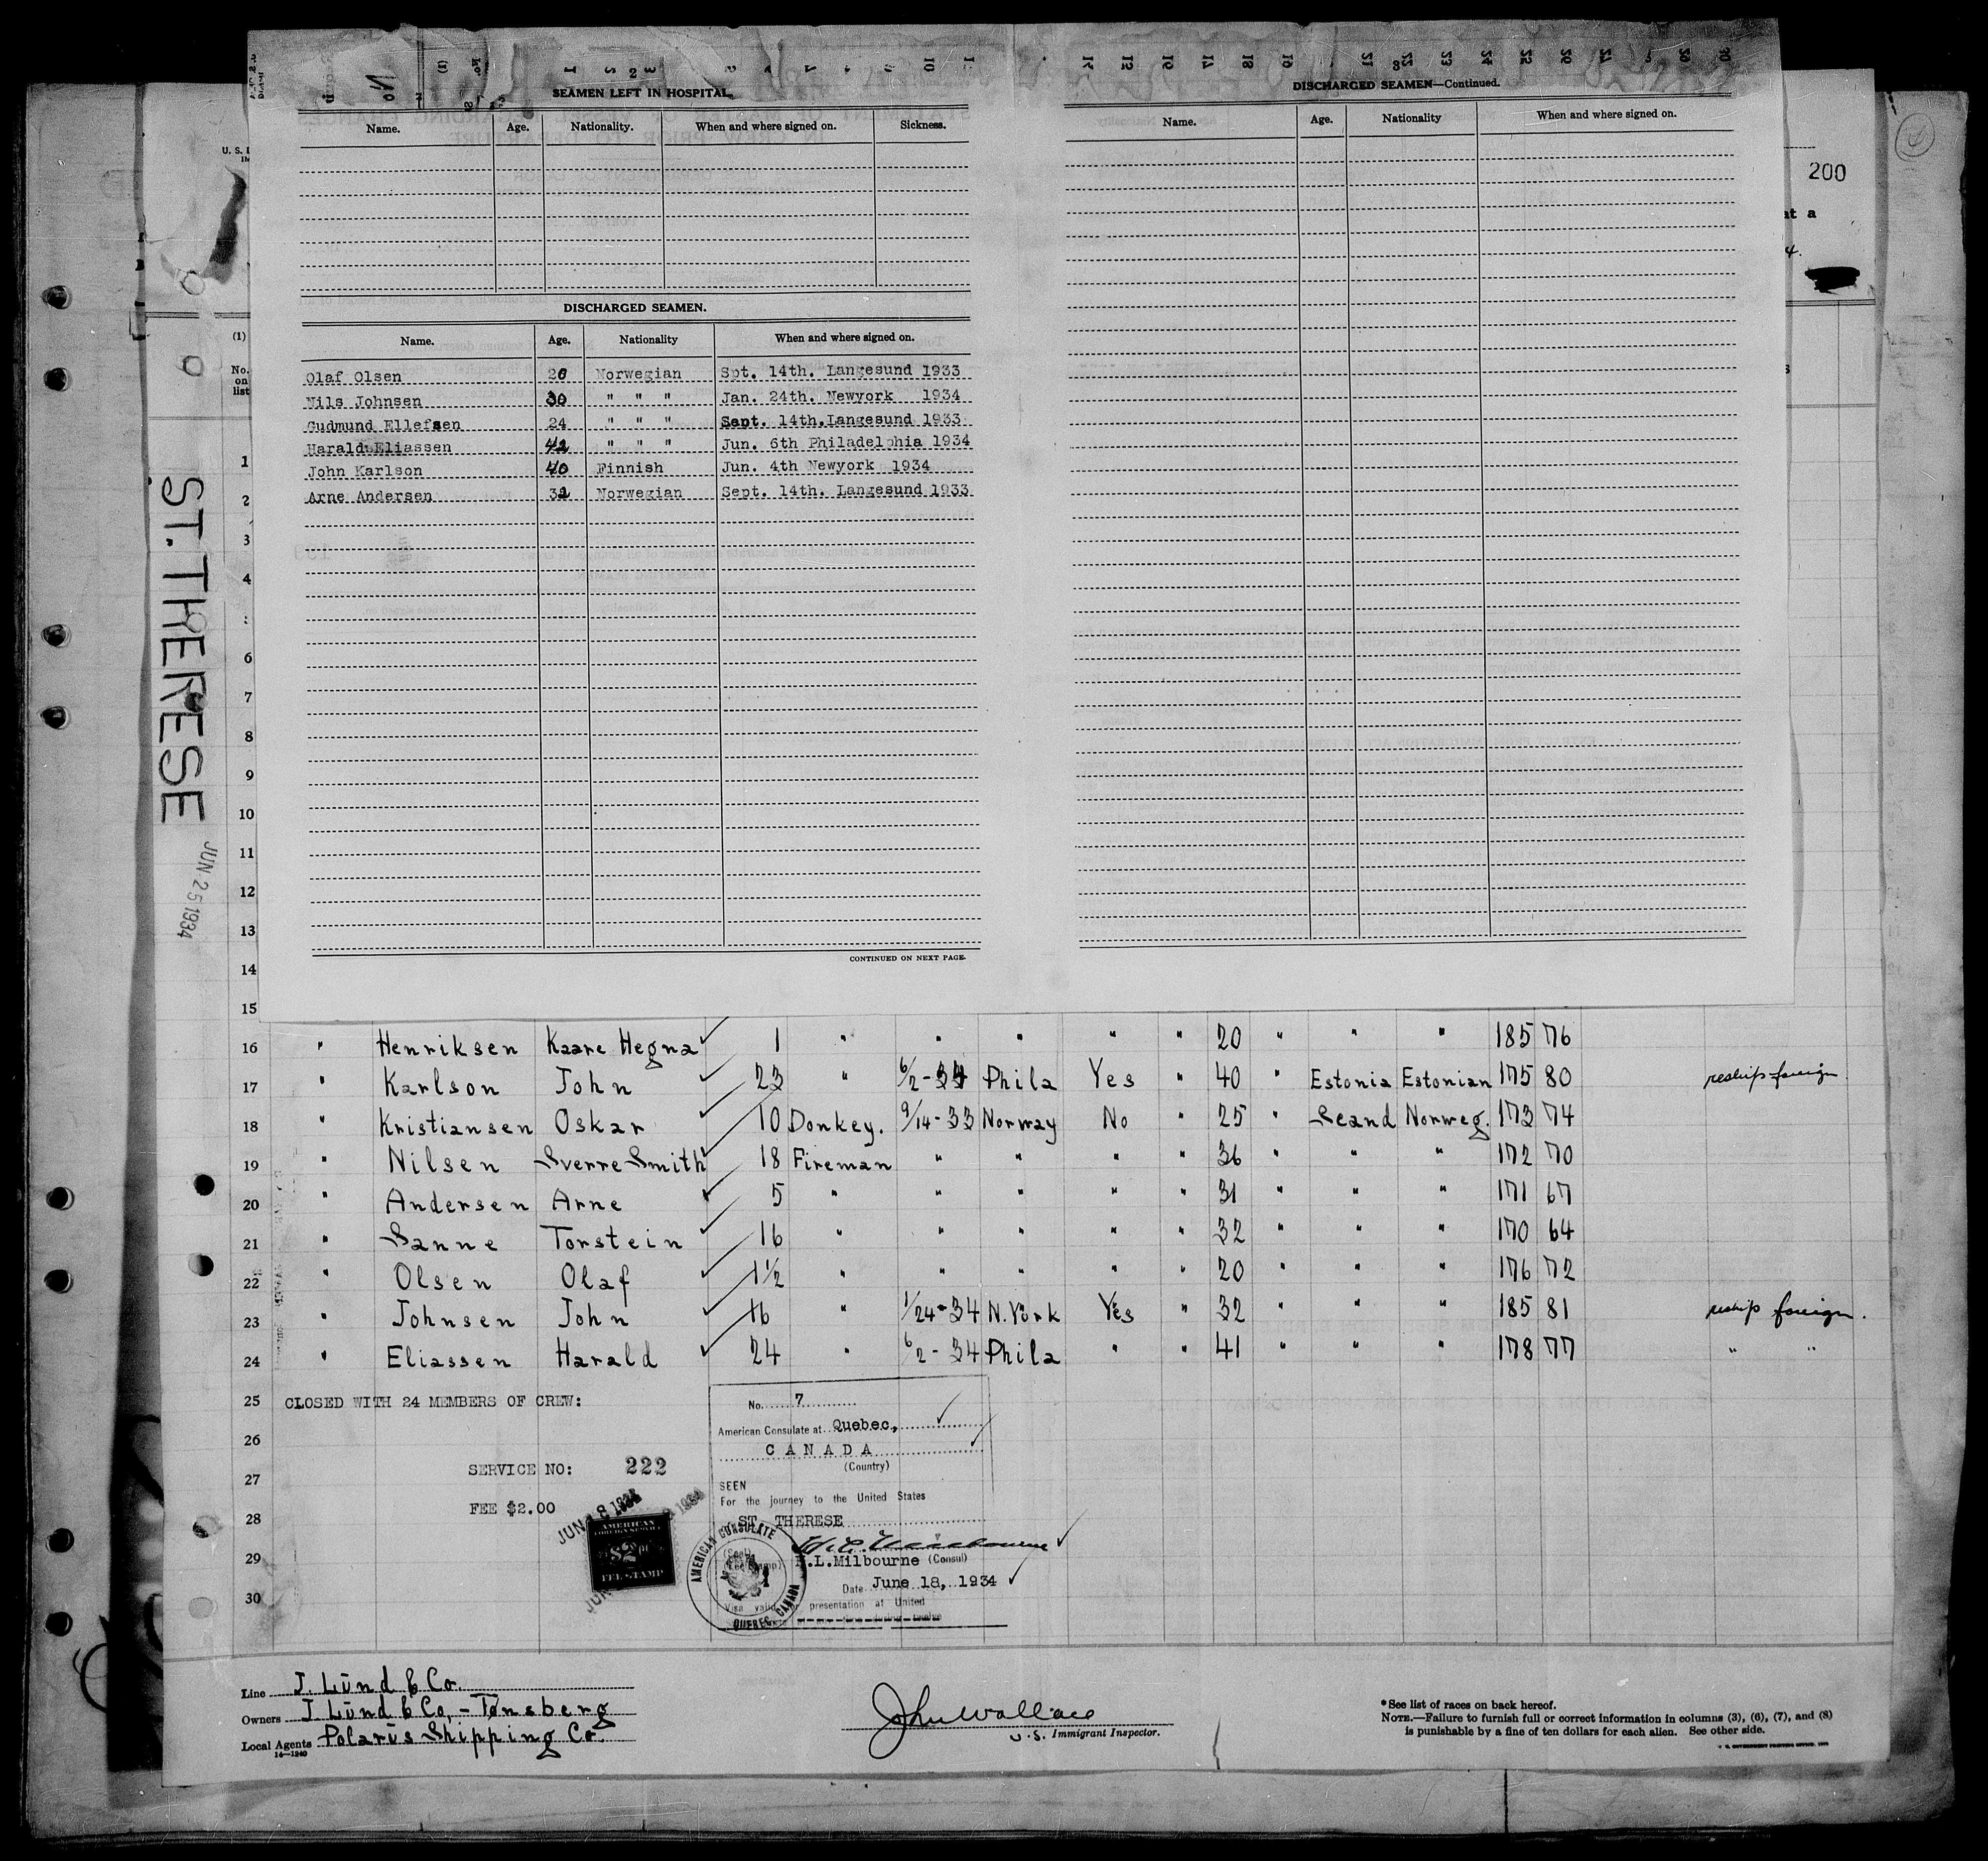 SEAMEN LEFT IN HOSPITAL
Name. Age. Nationality. When and where signed on. Sickness.
DISCHARGED SEAMEN.
Name. Age. Nationality When and where signed on.
Olaf Olsen 20 Norwegian Spt. 14th. Langesund 1933
Nils Johnsen 30 " " " Jan. 24th. Newyork 1934
Gudmund Ellefsen 24 " " " Sept. 14th.Langesund 1933
Harald Eliassen 42 " " " Jun. 6th Philadelphia 1934
John Karlson 40 Finnish Jun. 4th Newyork 1934
Arne Andersen 32 Norwegian Sept. 14th. Langesund 1933
CONTINUED ON NEXT PAGE.
DISCHARGED SEAMEN—Continued.
Name. Age. Nationality When and where signed on.
200
at a
4.
U. S.
(1)
No. on list
ST. THERESE
JUN 25 1934
1
2
3
4
6
7
8
9
10
11
12
13
14
15
16 " Henriksen Kaare Hegna 1 " " " " " 20 " " " 185 76
17 " Karlson John 23 " 6/2-34 Phila Yes " 40 " Estonia Estonian 175 80 reship foreign
18 " Kristiansen Oskar 10 Donkey. 9/14-33 Norway No " 25 " Scand Norweg. 173 74
19 " Nilsen Sverre Smith 18 Fireman " " " " 36 " " " 172 70
20 " Andersen Arne 5 " " " " " 31 " " " 171 67
21 " Sanne Torstein 16 " " " " " 32 " " " 170 64
22 " Olsen Olaf 1½ " " " " " 20 " " " 176 72
23 " Johnsen John 16 " 1/24-34 N.York Yes " 32 " " " 185 81 reship foreign.
24 " Eliassen Harald 24 " 6/2-34 Phila " " 41 " " " 178 77 " "
25 CLOSED WITH 24 MEMBERS OF CREW:
26
27
28
29
30
SERVICE NO: 222
FEE $2.00
JUN 18 1934
AMERICAN
FOREIGN SERVICE
$2
FEE STAMP
No. 7
American Consulate at Quebec,
CANADA
(Country)
SEEN
For the journey to the United States
ST. THERESE
H.L.Milbourne (Consul)
Date June 18, 1934
Visa valid for presentation at United
AMERICAN CONSULATE
QUEBEC, CANADA
Line J. Lund & Co.
Owners J. Lund & Co, - Tønsberg
Local Agents Polarus Shipping Co.
14—1240
John Wallace
U.S. Immigrant Inspector.
* See list of races on back hereof.
NOTE.—Failure to furnish full or correct information in columns (3), (6), (7), and (8)
is punishable by a fine of ten dollars for each alien. See other side.
U. S. GOVERNMENT PRINTING OFFICE